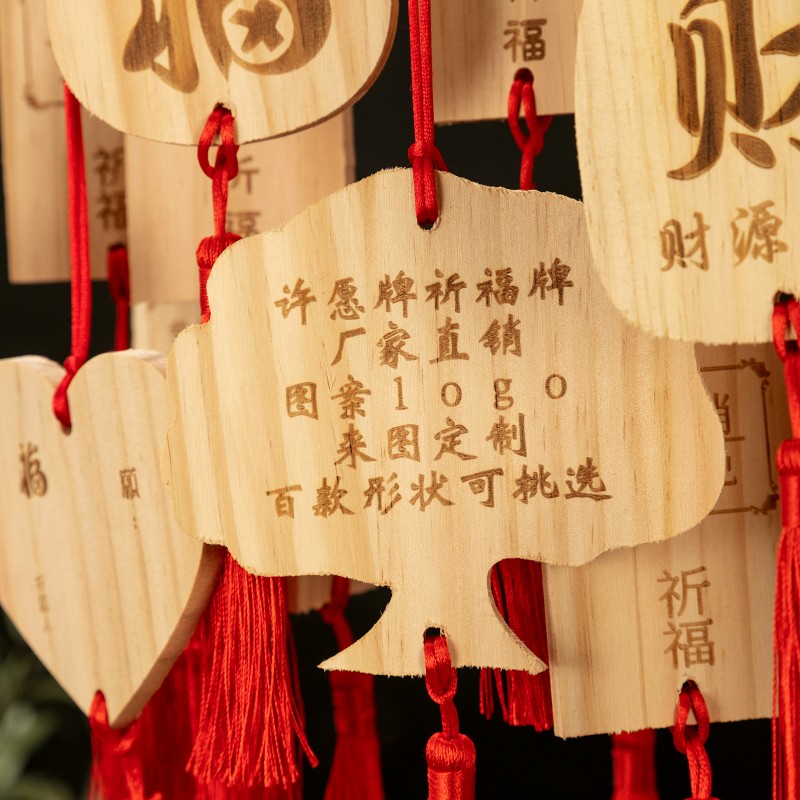 福
祈福
财
财源
祈福
祈福
许愿牌祈福牌
厂家直销
图案logo
来图定制
百款形状可挑选
福
愿:
祈福